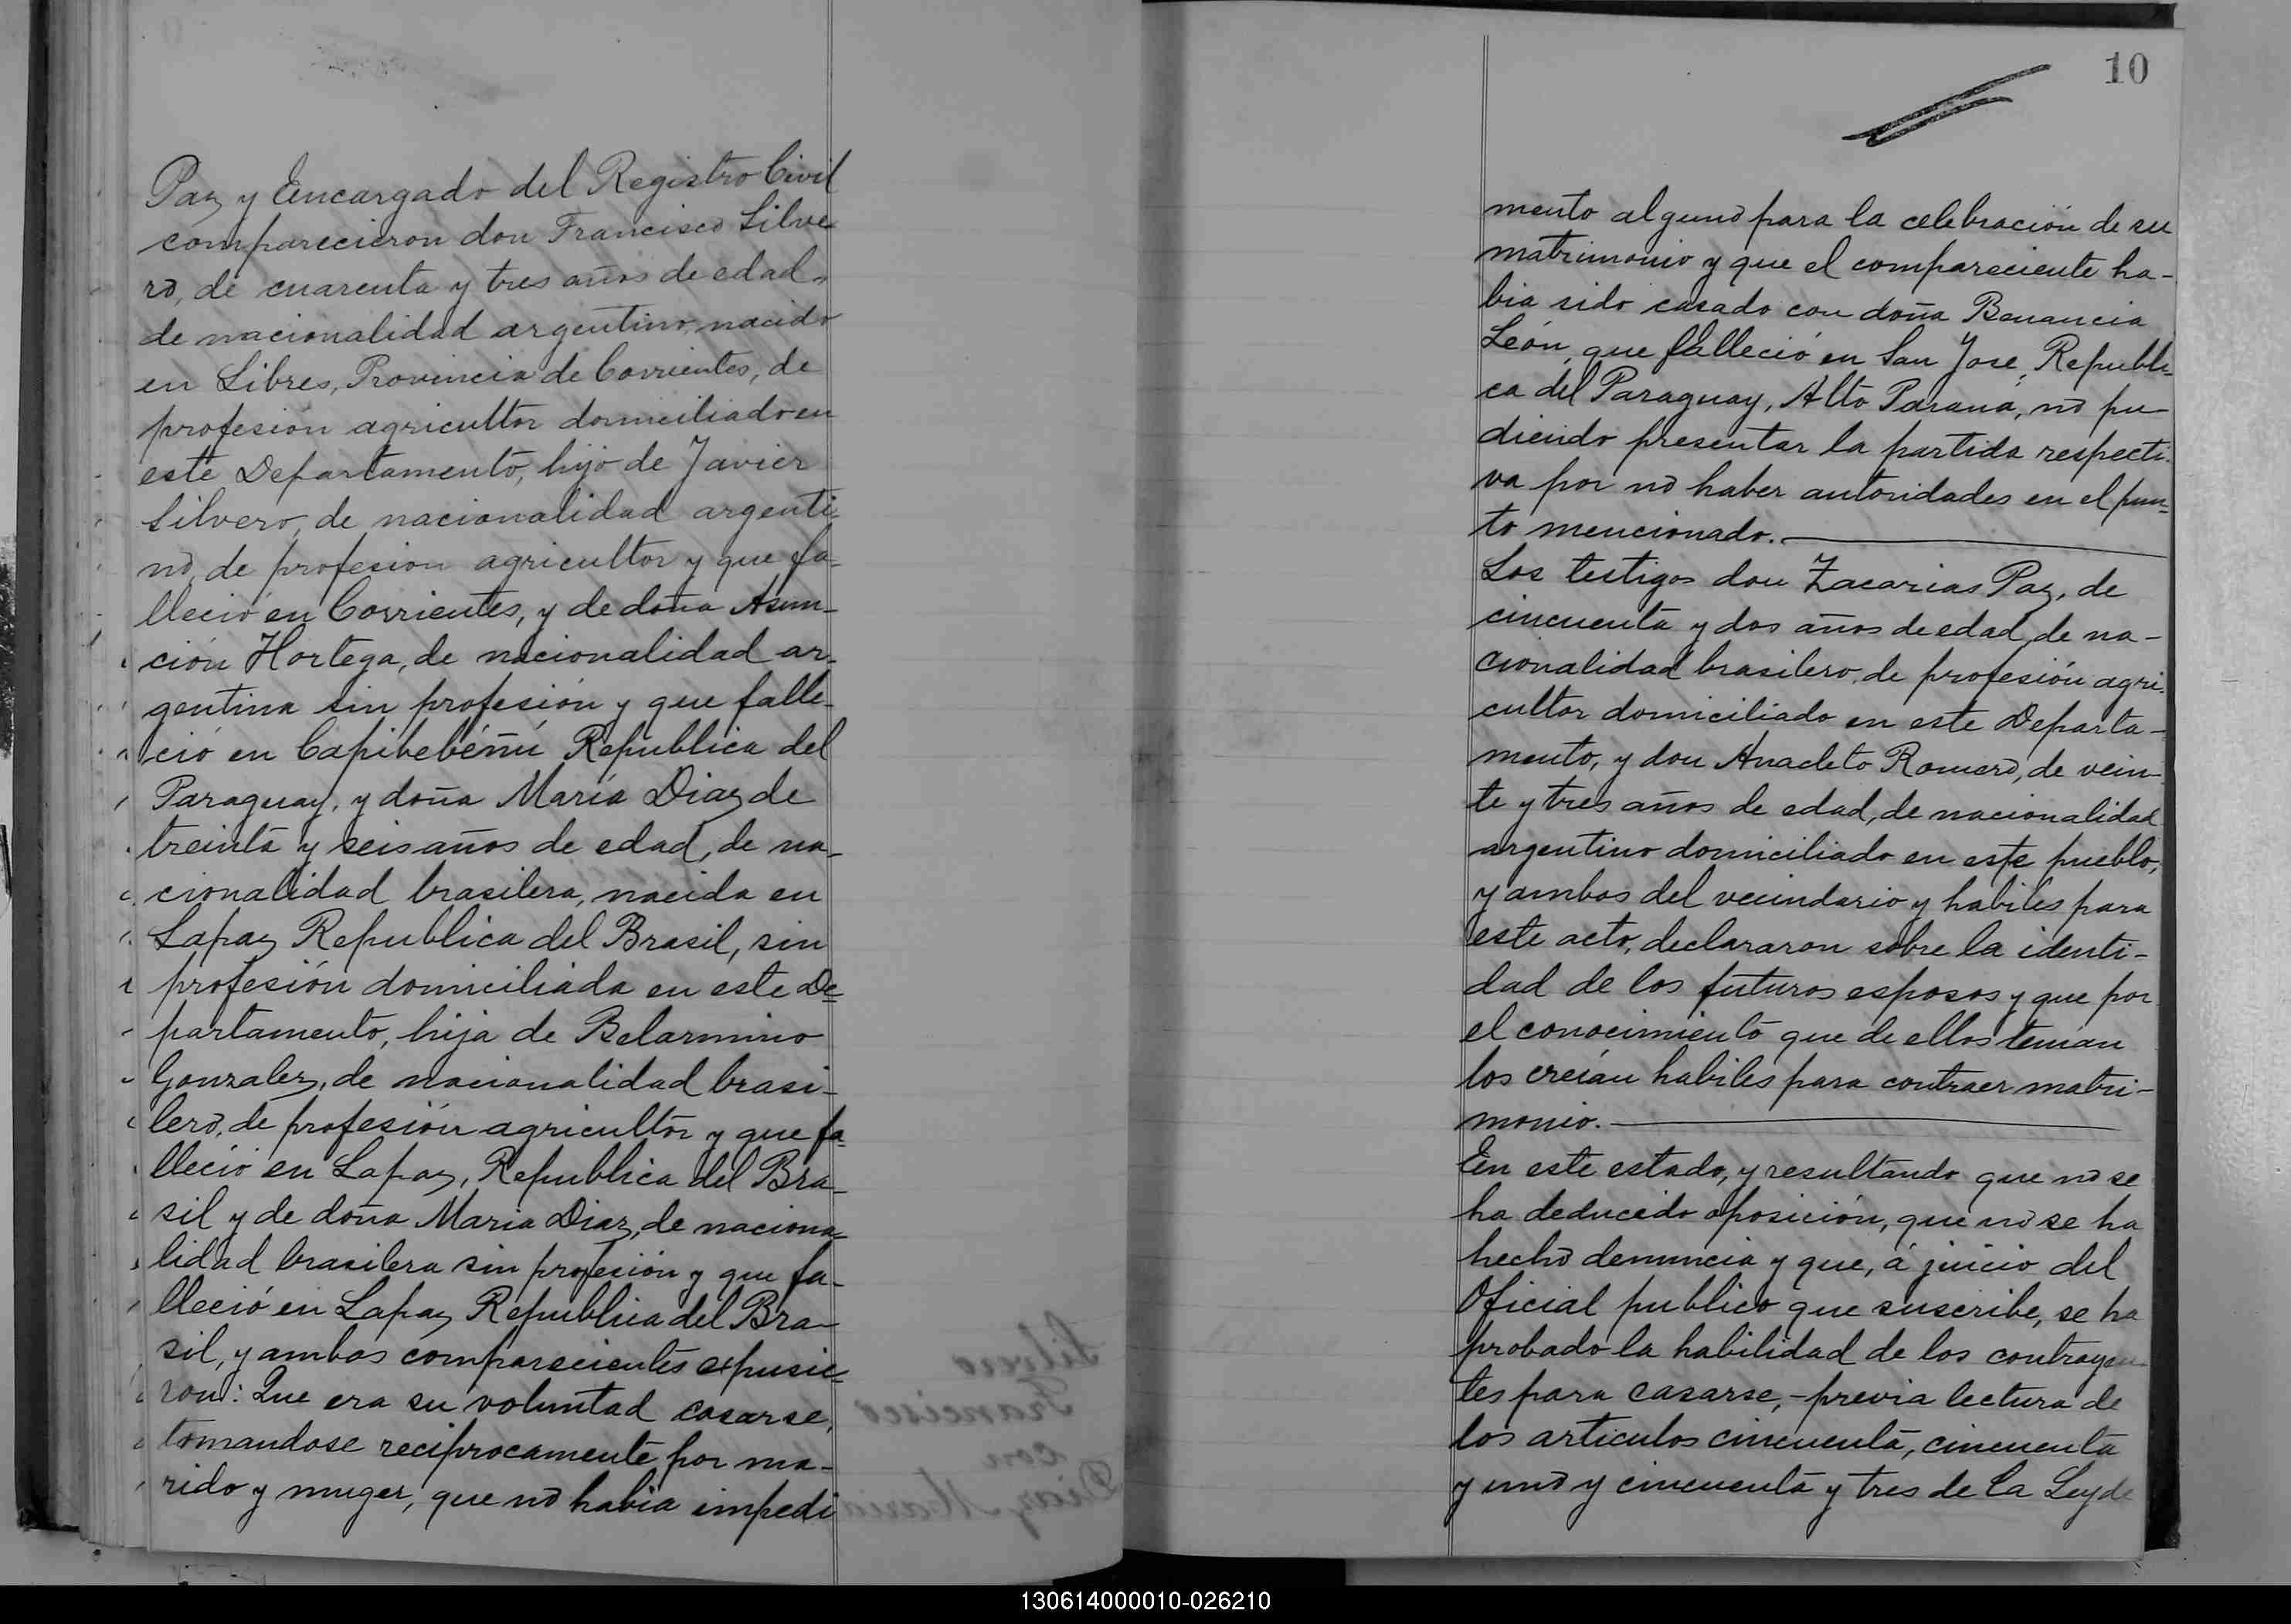 Paz y Encargado del Registro Civil
comparecieron don Francisco Silve-
ro, de cuarenta y tres años de edad,
de nacionalidad argentino, nacido
en Libres, Provincia de Corrientes, de
profesión agricultor domiciliado en
este Departamento, hijo de Javier
Silvero, de nacionalidad argenti-
no, de profesion agricultor y que fa-
lleció en Corrientes, y de doña Asun-
ción Hortega, de nacionalidad ar-
gentina sin profesión y que falle-
ció en Capibebéñú Republica del
Paraguay, y doña María Diaz de
treinta y seis años de edad, de na-
cionalidad brasilera, nacida en
Lapaz Republica del Brasil, sin
profesión domiciliada en este De-
partamento, hija de Belarmino
Gonzalez, de nacionalidad brasi-
lero, de profesión agricultor y que fa-
lleció en Lapaz, Republica del Bra-
sil y de doña Maria Diaz, de naciona-
lidad brasilera sin profesión y que fa-
lleció en Lapaz Republica del Bra-
sil, y ambos comparecientes expusie-
ron: Que era su voluntad casarse,
tomandose reciprocamente por ma-
rido y muger, que no habia impedi
10
mento alguno para la celebración de su
matrimonio y que el compareciente ha-
bia sido casado con doña Benancia
León, que falleció en San José, Republi-
ca del Paraguay, Alto Paraná, no pu-
diendo presentar la partida respecti-
va por no haber autoridades en el pun-
to mencionado.
Los testigos don Zacarias Paz, de
cincuenta y dos años de edad, de na-
cionalidad brasilero, de profesión agri-
cultor domiciliado en este Departa-
mento, y don Anacleto Romero, de vein-
te y tres años de edad, de nacionalidad
argentino domiciliado en este pueblo,
y ambos del vecindario y habiles para
este acto, declararon sobre la identi-
dad de los futuros esposos y que por
el conocimiento que de ellos tenian
los creían habiles para contraer matri-
monio.
En este estado, y resultando que no se
ha deducido oposición, que no se ha
hecho denuncia y que, á juicio del
Oficial publico que suscribe, se ha
probado la habilidad de los contrayen-
tes para casarse, - previa lectura de
los articulos cincuenta, cincuenta
y uno y cincuenta y tres de la Ley de
130614000010-026210